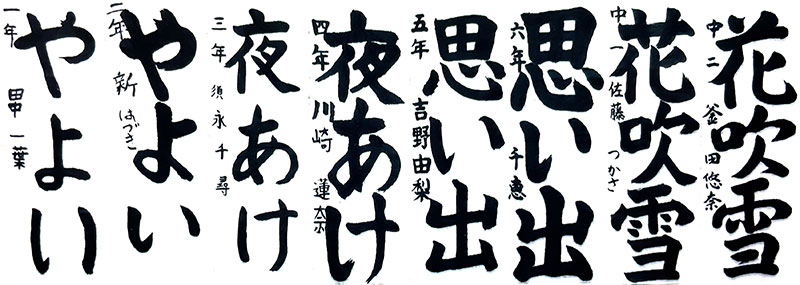 花吹雪
中二 釜田悠奈
花吹雪
中一 佐藤 つかさ
思い出
六年 千恵
思い出
五年 吉野由梨
夜あけ
四年 川崎 蓮奈
夜あけ
三年 須永千尋
やよい
二年 新 はづき
やよい
一年 田中一葉